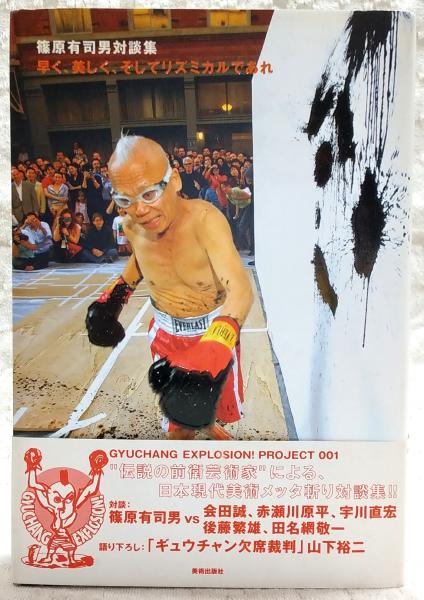 篠原有司男対談集
早く、美しく、そしてリズミカルであれ
EVERLAST
GYUCHANG EXPLOSION! PROJECT 001
"伝説の前衛芸術家"による、
日本現代美術メッタ斬り対談集!!
対談:
篠原有司男 vs 会田誠、赤瀬川原平、宇川直宏
後藤繁雄、田名網敬一
語り下ろし:「ギュウチャン欠席裁判」山下裕二
GYUCHANG EXPLOSION!
美術出版社